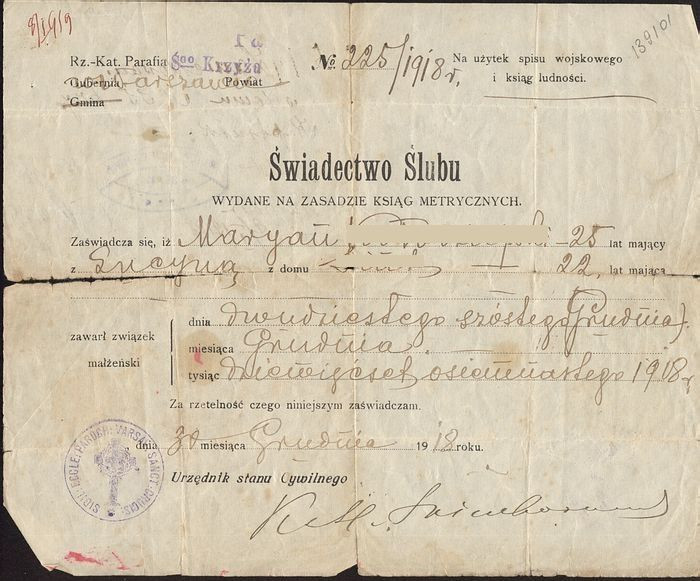 8/I 1919
139101
Rz.-Kat. Parafia Sgo Krzyża № 225/1918 r. Na użytek spisu wojskowego
Gubernia Warszawa Powiat i ksiąg ludności.
Gmina
Świadectwo Ślubu
WYDANE NA ZASADZIE KSIĄG METRYCZNYCH.
Zaświadcza się, iż Maryan 25 lat mający
z Lucyną z domu 22 lat mająca
zawarł związek małżeński
dnia dwudziestego szóstego (Grudnia)
miesiąca Grudnia
tysiąc dziewięćset osiemnastego 1918 r
Za rzetelność czego niniejszym zaświadczam.
dnia 30 miesiąca Grudnia 1918 roku.
Urzędnik stanu Cywilnego
SIGIL: ECCLE: PAROCH: VARSAV: SANCT: CRUCIS: